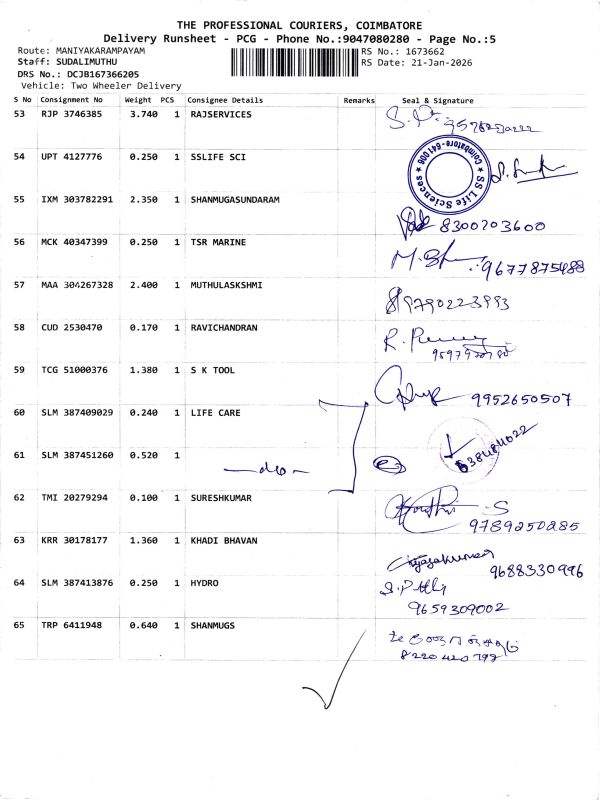 THE PROFESSIONAL COURIERS, COIMBATORE
Delivery Runsheet - PCG - Phone No.:9047080280 - Page No.:5
Route: MANIYAKARAMPAYAM RS No.: 1673662
Staff: SUDALIMUTHU RS Date: 21-Jan-2026
DRS No.: DCJB167366205
Vehicle: Two Wheeler Delivery
S No Consignment No Weight PCS Consignee Details Remarks Seal & Signature
53 RJP 3746385 3.740 1 RAJSERVICES
54 UPT 4127776 0.250 1 SSLIFE SCI
SS Life Sciences Coimbatore-641006
55 IXM 303782291 2.350 1 SHANMUGASUNDARAM
8300203600
56 MCK 40347399 0.250 1 TSR MARINE
9677875488
57 MAA 304267328 2.400 1 MUTHULASKSHMI
9790223993
58 CUD 2530470 0.170 1 RAVICHANDRAN
59 TCG 51000376 1.380 1 S K TOOL
9952650507
60 SLM 387409029 0.240 1 LIFE CARE
61 SLM 387451260 0.520 1
—do—
62 TMI 20279294 0.100 1 SURESHKUMAR
9789250285
63 KRR 30178177 1.360 1 KHADI BHAVAN
9688330996
64 SLM 387413876 0.250 1 HYDRO
9659309002
65 TRP 6411948 0.640 1 SHANMUGS
8220420798